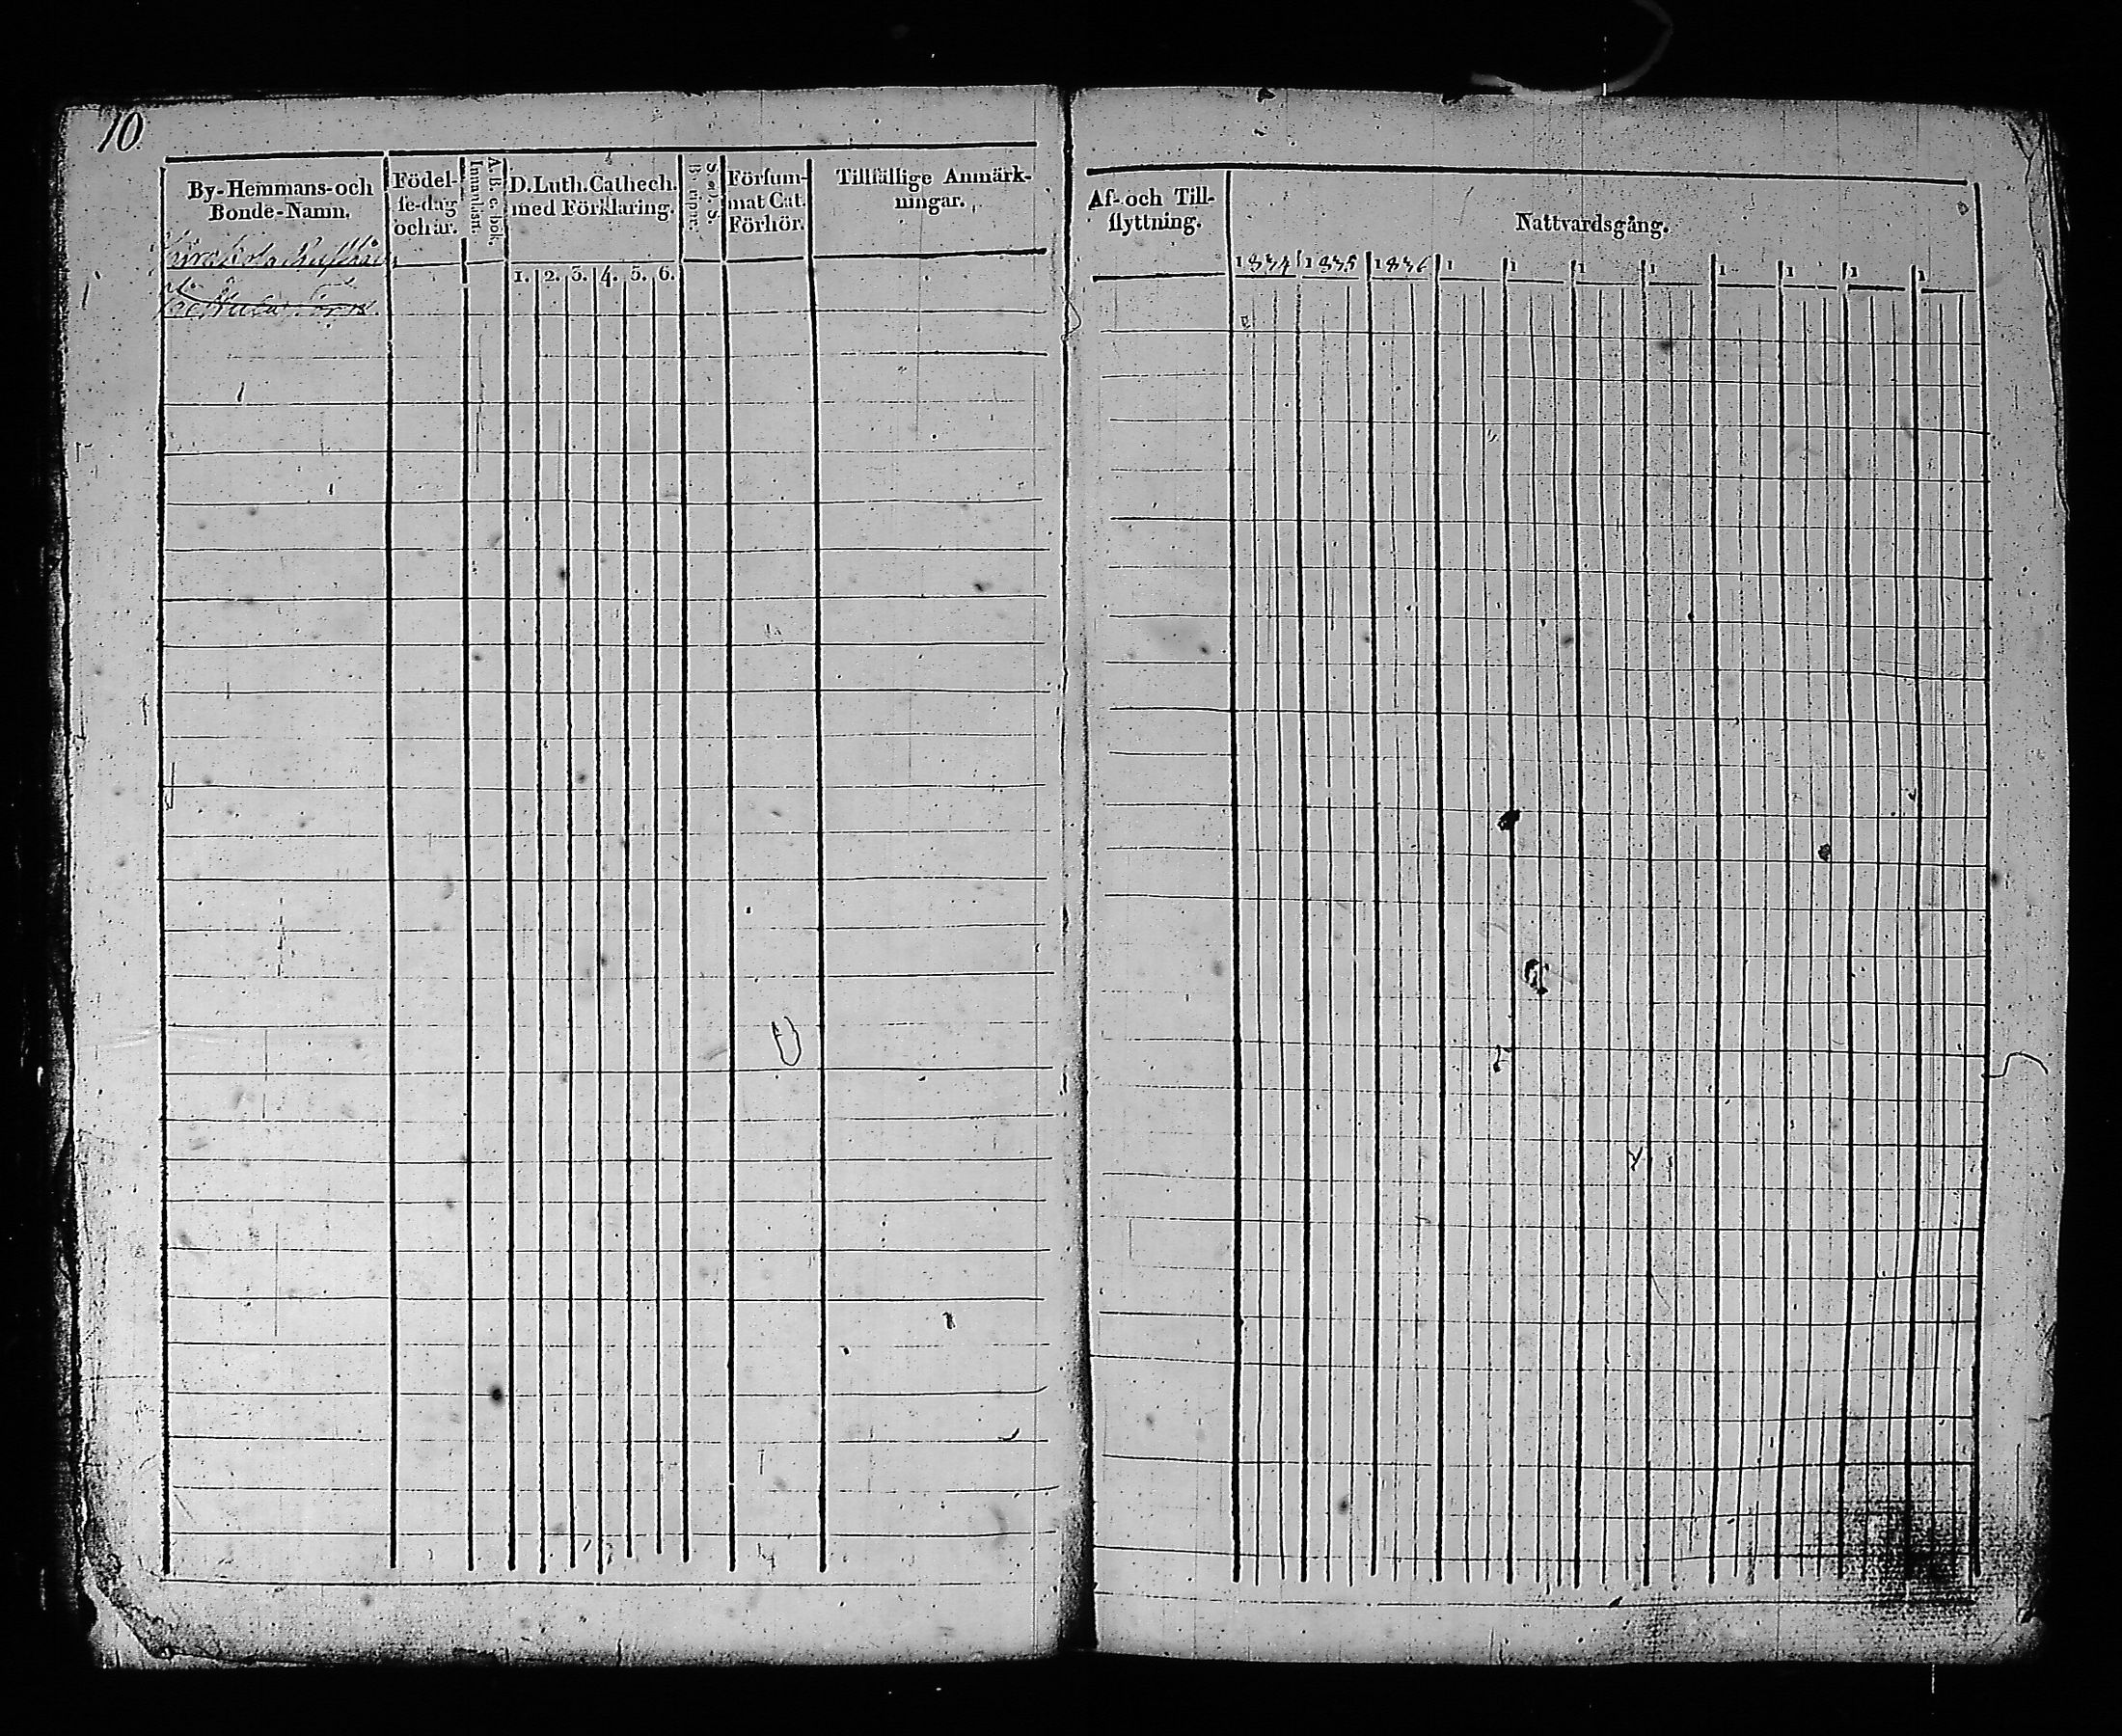 10.
By-Hemmans-och
Bonde-Namn.
Födel-
se-dag
och år.
Innanläsn.
A. B. c. bok.
D. Luth. Cathech.
med Förklaring.
1. 2. 3. 4. 5. 6.
Försum-
mat Cat.
Förhör.
Tillfällige Anmärk-
ningar.
Af- och Till-
flyttning.
Nattvardsgång.
1834 1835 1836 1 1 1 1 1 1 1 1